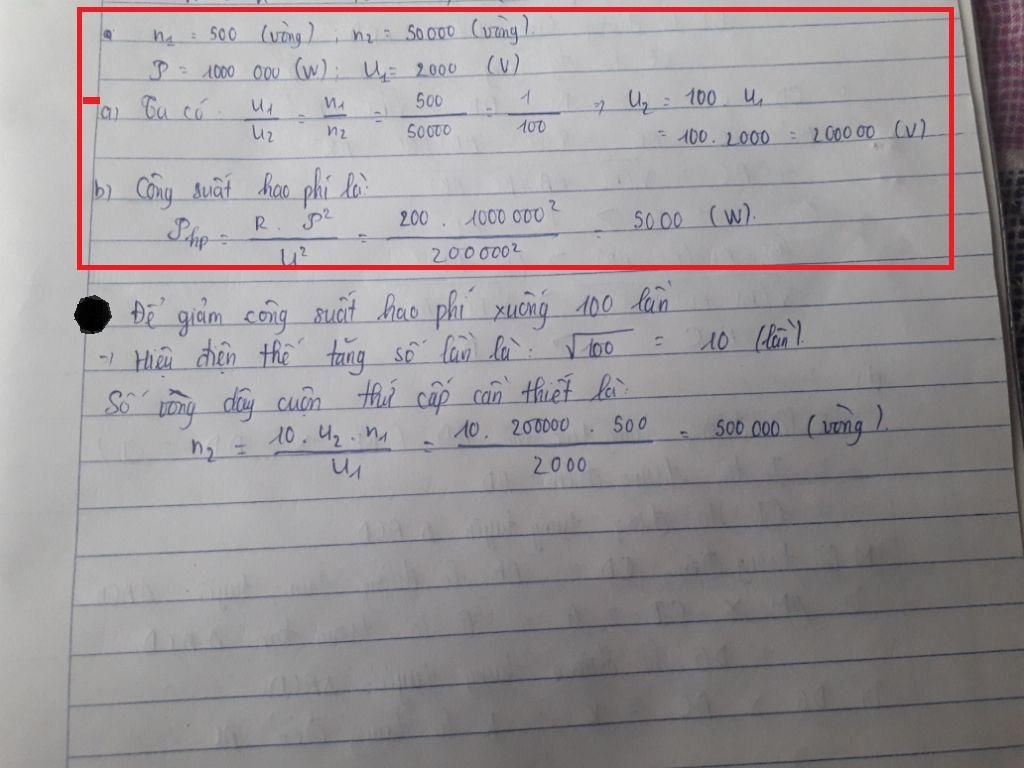 n₁ = 500 (vòng) ; n₂ = 50000 (vòng).
P = 1000 000 (W) ; U₁ = 2000 (V)
a) Ta có : U₁/U₂ = n₁/n₂ = 500/50000 = 1/100 => U₂ = 100 . U₁
= 100 . 2000 = 200000 (V)
b) Công suất hao phí là:
P_hp = R . P²/U² = 200 . 1000 000²/200 000² = 5000 (W).
Để giảm công suất hao phí xuống 100 lần
=> Hiệu điện thế tăng số lần là: √100 = 10 (lần).
Số vòng dây cuộn thứ cấp cần thiết là:
n₂ = 10 . U₂ . n₁/U₁ = 10 . 200000 . 500/2000 = 500 000 (vòng).